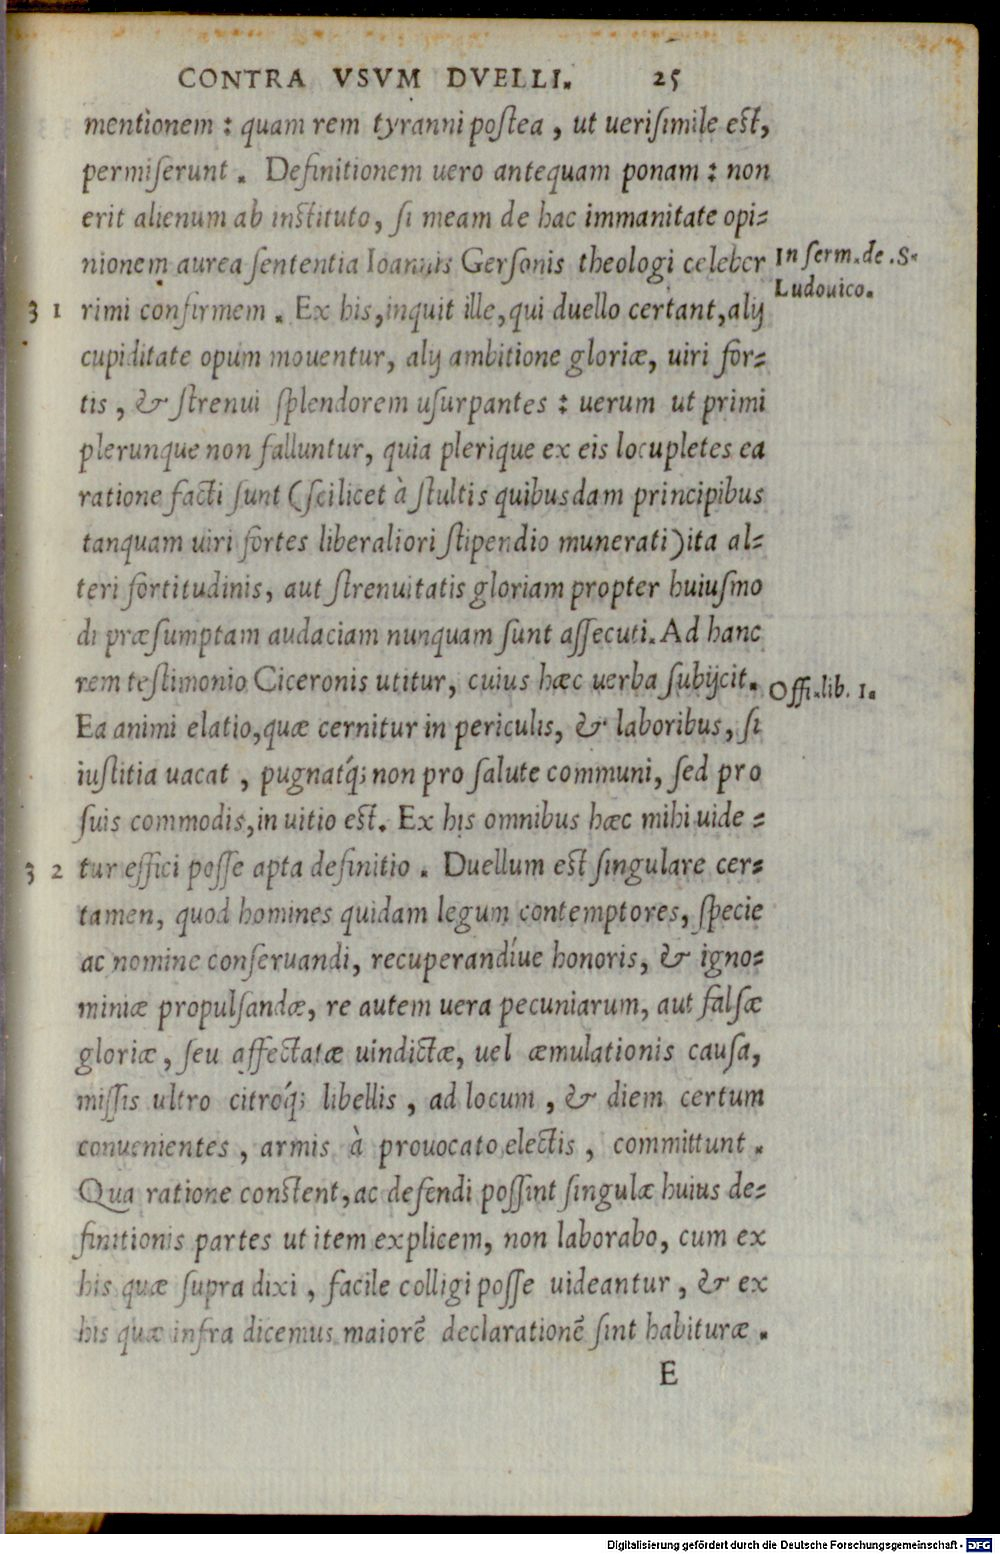 CONTRA VSVM DVELLI. 25
mentionem : quam rem tyranni poſtea , ut ueriſimile eſt,
permiſerunt . Definitionem uero antequam ponam : non
erit alienum ab inſtituto, ſi meam de hac immanitate opi=
nionem aurea ſententia Ioannis Gerſonis theologi celeber
In ſerm.de .S.
Ludouico.
31 rimi confirmem . Ex his,inquit ille,qui duello certant,alij
cupiditate opum mouentur, alij ambitione gloriæ, uiri for=
tis , & ſtrenui ſplendorem uſurpantes : uerum ut primi
plerunque non falluntur, quia plerique ex eis locupletes ea
ratione facti ſunt (ſcilicet à ſtultis quibusdam principibus
tanquam uiri fortes liberaliori ſtipendio munerati)ita al=
teri fortitudinis, aut ſtrenuitatis gloriam propter huiuſmo
di præſumptam audaciam nunquam ſunt aſſecuti. Ad hanc
rem teſtimonio Ciceronis utitur, cuius hæc uerba ſubijcit.
Offi.lib. 1.
Ea animi elatio,quæ cernitur in periculis, & laboribus, ſi
iuſtitia uacat , pugnatq́; non pro ſalute communi, ſed pro
ſuis commodis,in uitio eſt. Ex his omnibus hæc mihi uide =
32 tur effici poſſe apta definitio . Duellum eſt ſingulare cer=
tamen, quod homines quidam legum contemptores, ſpecie
ac nomine conſeruandi, recuperandíue honoris, & igno=
miniæ propulſandæ, re autem uera pecuniarum, aut falſæ
gloriæ , ſeu affectatæ uindictæ, uel æmulationis cauſa,
miſſis ultro citroq́; libellis , ad locum , & diem certum
conuenientes , armis à prouocato electis , committunt .
Qua ratione conſtent,ac defendi poſſint ſingulæ huius de=
finitionis partes ut item explicem, non laborabo, cum ex
his quæ ſupra dixi , facile colligi poſſe uideantur , & ex
his quæ infra dicemus maiorē declarationē ſint habituræ .
E
Digitalisierung gefördert durch die Deutsche Forschungsgemeinschaft - DFG